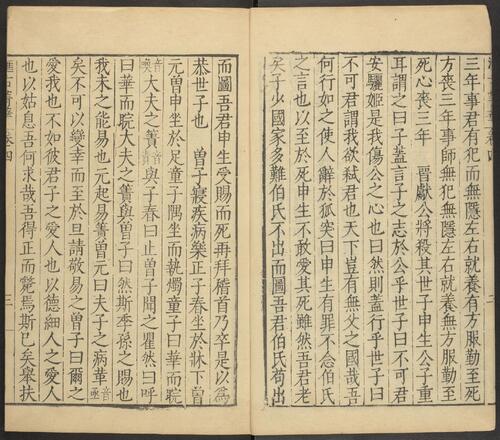 三年事君有犯而無隱左右就養有方服勤至死
方喪三年事師無犯無隱左右就養無方服勤至
死心喪三年　晉獻公將殺其世子申生公子重
耳謂之曰子蓋言子之志於公乎世子曰不可君
安驪姬是我傷公之心也曰然則蓋行乎世子曰
不可君謂我欲弒君也天下豈有無父之國哉吾
何行如之使人辭於狐突曰申生有罪不念伯氏
之言也以至於死申生不敢愛其死雖然吾君老
矣子少國家多難伯氏不出而圖吾君伯氏苟出
而圖吾君申生受賜而死再拜稽首乃卒是以爲
恭世子也　曾子寢疾病樂正子春坐於牀下曾
元曾申坐於足童子隅坐而執燭童子曰華而睆
大夫之簀與子春曰止曾子聞之瞿然曰呼
曰華而睆大夫之簀與曾子曰然斯季孫之賜也
我未之能易也元起易簀曾元曰夫子之病革
矣不可以變幸而至於旦請敬易之曾子曰爾之
愛我也不如彼君子之愛人也以德細人之愛人
也以姑息吾何求哉吾得正而斃焉斯已矣舉扶